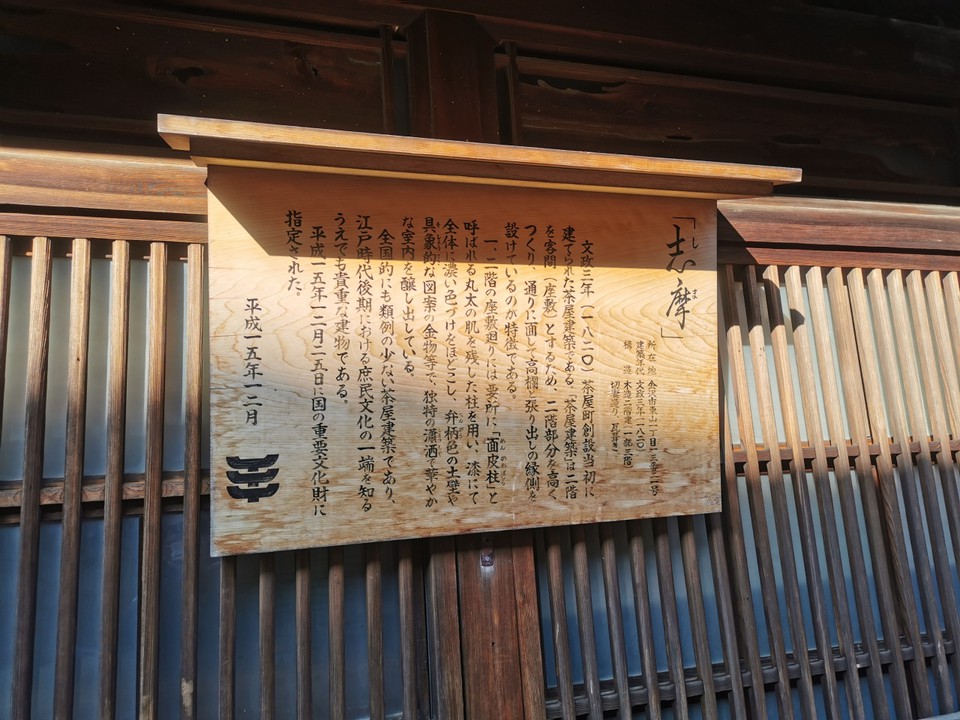 「志摩」
しま
所在地 金沢市東山一丁目一三番二一号
建築年代 文政三年(一八二〇)
構造 木造二階建一部三階
切妻造り、瓦葺き
文政三年(一八二〇)茶屋町創設当初に
建てられた茶屋建築である。「茶屋建築」は二階
を客間(座敷)とするため、二階部分を高く
つくり、通りに面して高欄と張り出しの縁側を
設けているのが特徴である。
一・二階の座敷廻りには要所に「面皮柱」と
めんかわばしら
呼ばれる丸太の肌を残した柱を用い、漆にて
全体に濃い色づけをほどこし、弁柄色の土壁や
具象的な図案の金物等で、独特の瀟洒で華やか
な室内を醸し出している。
全国的にも類例の少ない茶屋建築であり、
江戸時代後期における庶民文化の一端を知る
うえでも貴重な建物である。
平成一五年一二月二五日に国の重要文化財に
指定された。
平成一五年一二月